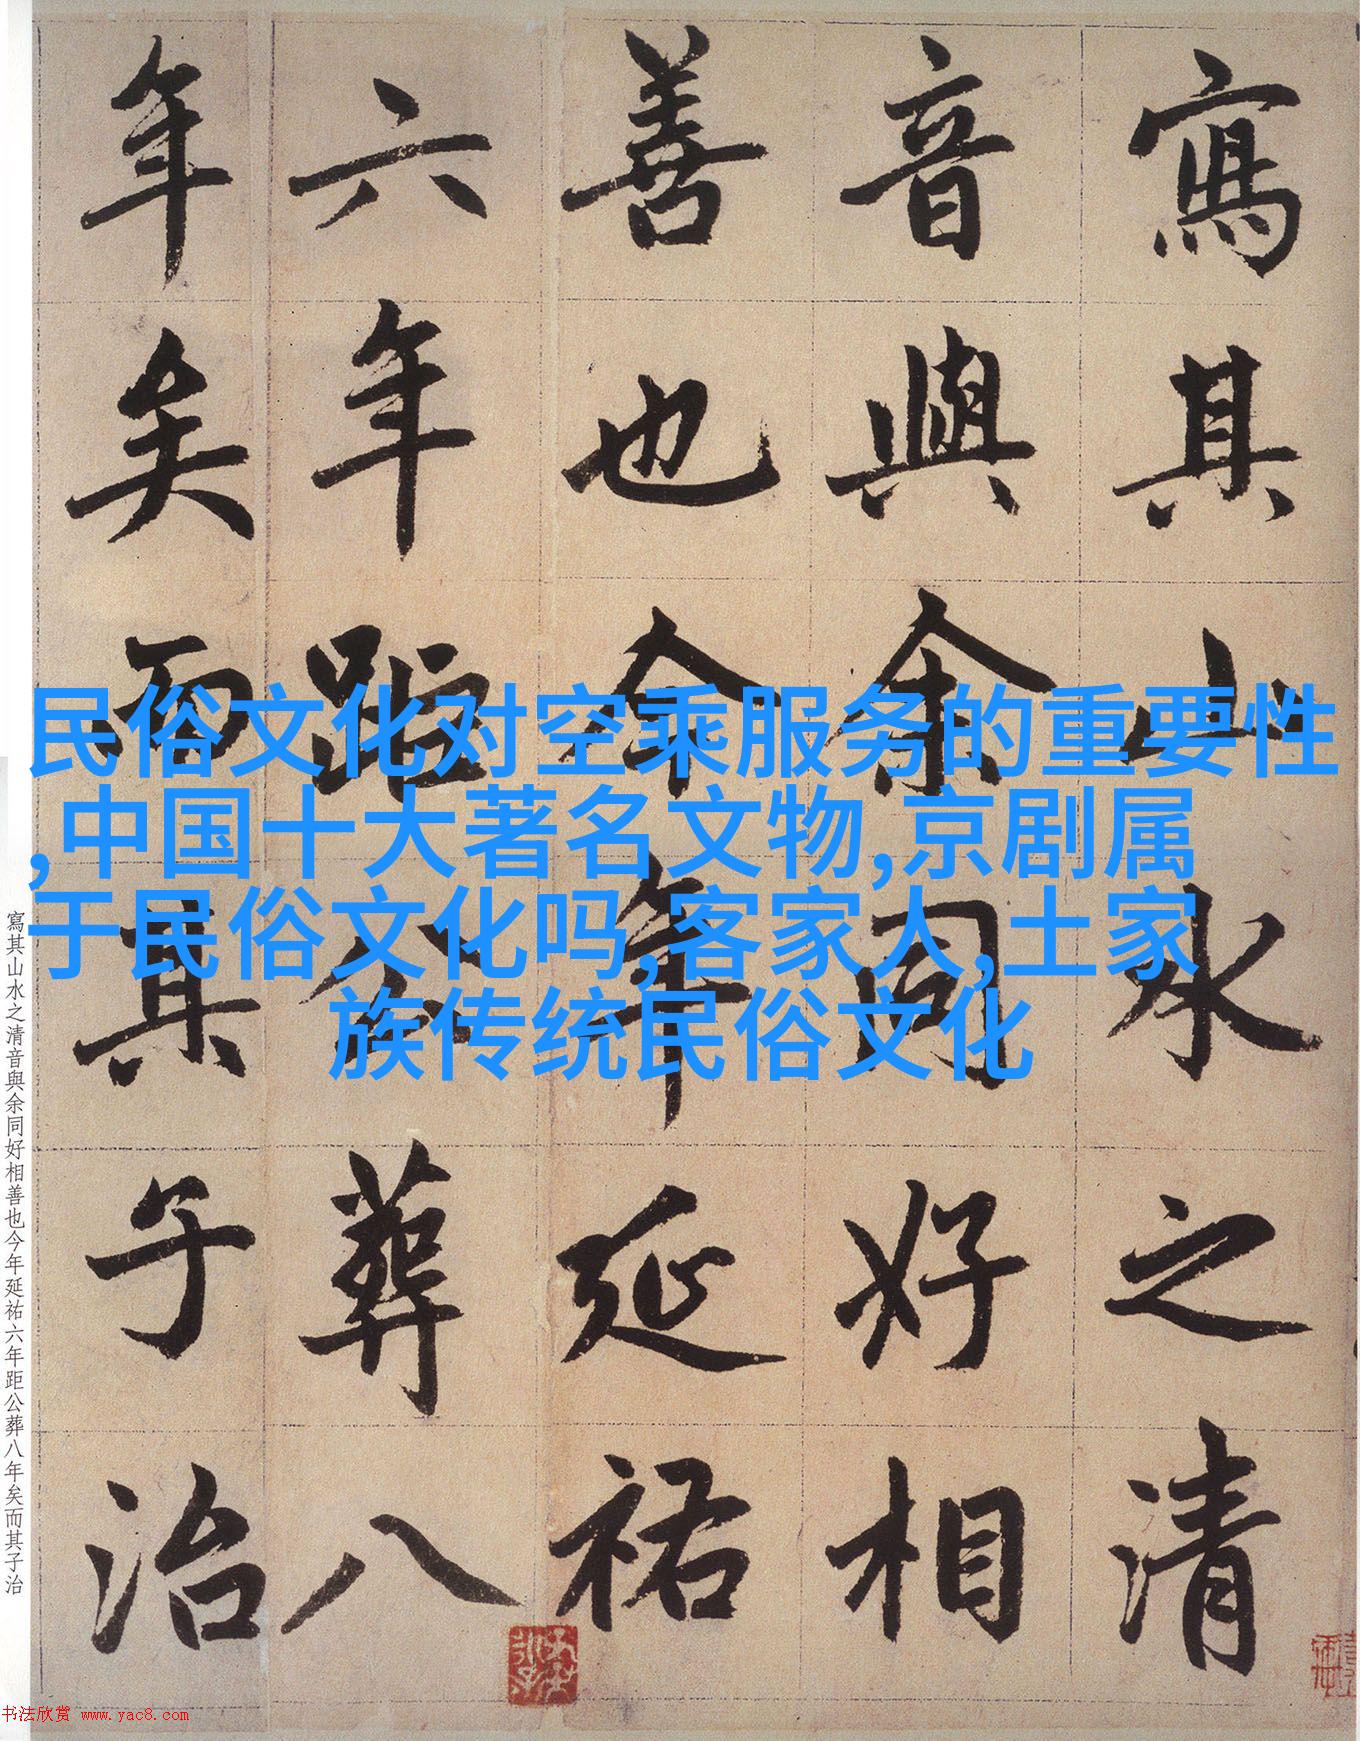 寫其山水之清
音與余同好相
善也今年延祐
六年距公葬八
年矣而其子治
民俗文化对空乘服务的重要性
,中国十大著名文物,京剧属
于民俗文化吗,客家人,土家
族传统民俗文化
寫其山水之清音與余同好相善也今年延祐六年距公葬八年矣而其子治
书法欣赏 www.yac8.com